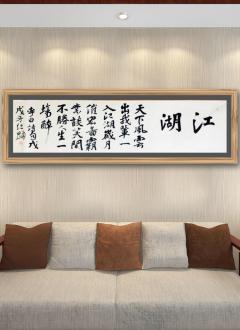 江湖
天下風雲
出我輩一
入江湖歲月
催宏圖霸
業談笑間
不勝人生一
場醉